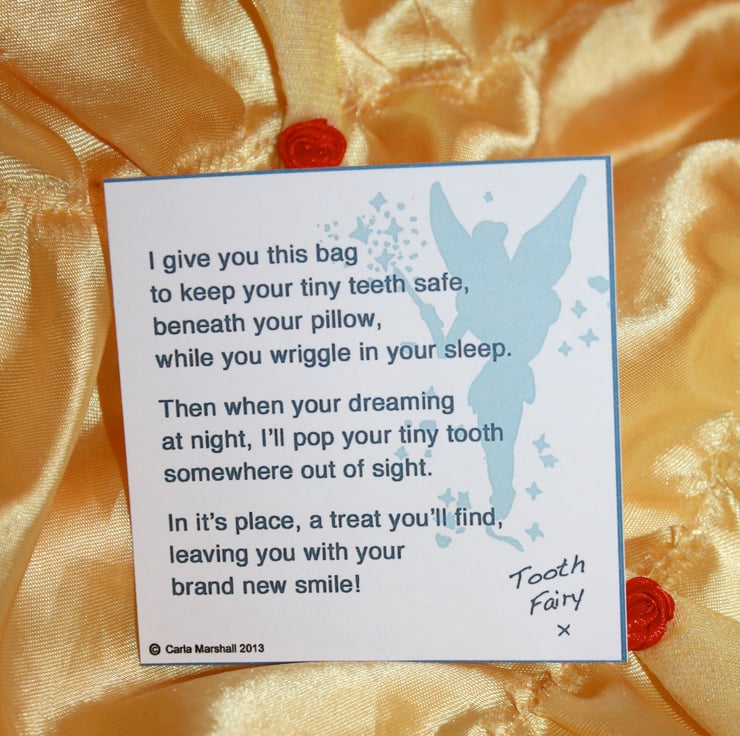 I give you this bag
to keep your tiny teeth safe,
beneath your pillow,
while you wriggle in your sleep.
Then when your dreaming
at night, I'll pop your tiny tooth
somewhere out of sight.
In it's place, a treat you'll find,
leaving you with your
brand new smile!
Tooth
Fairy
x
© Carla Marshall 2013